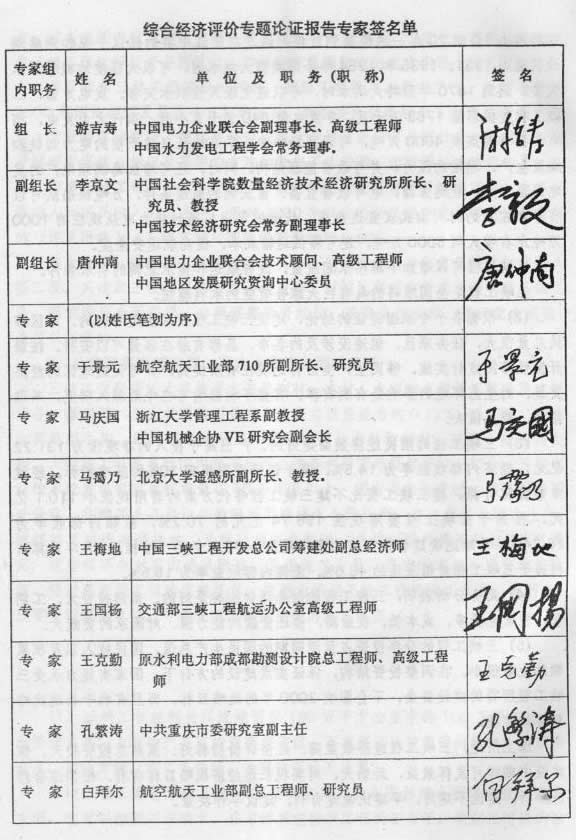 综合经济评价专题论证报告专家签名单
专家组内职务 姓 名 单 位 及 职 务 (职 称) 签 名
组 长 游吉寿 中国电力企业联合会副理事长、高级工程师 游吉寿
中国水力发电工程学会常务理事.
副组长 李京文 中国社会科学院数量经济技术经济研究所所长、研
究员、教授
中国技术经济研究会常务副理事长
副组长 唐仲南 中国电力企业联合会技术顾问、高级工程师 唐仲南
中国地区发展研究咨询中心委员
专 家 (以姓氏笔划为序)
专 家 于景元 航空航天工业部710所副所长、研究员 于景元
专 家 马庆国 浙江大学管理工程系副教授 马庆国
中国机械企协VE研究会副会长
专 家 马霭乃 北京大学遥感所副所长、教授. 马霭乃
专 家 王梅地 中国三峡工程开发总公司筹建处副总经济师 王梅地
专 家 王国杨 交通部三峡工程航运办公室高级工程师 王國揚
专 家 王克勤 原水利电力部成都勘测设计院总工程师、高级工程 王克勤
师
专 家 孔繁涛 中共重庆市委研究室副主任 孔繁涛
专 家 白拜尔 航空航天工业部副总工程师、研究员 白拜尔